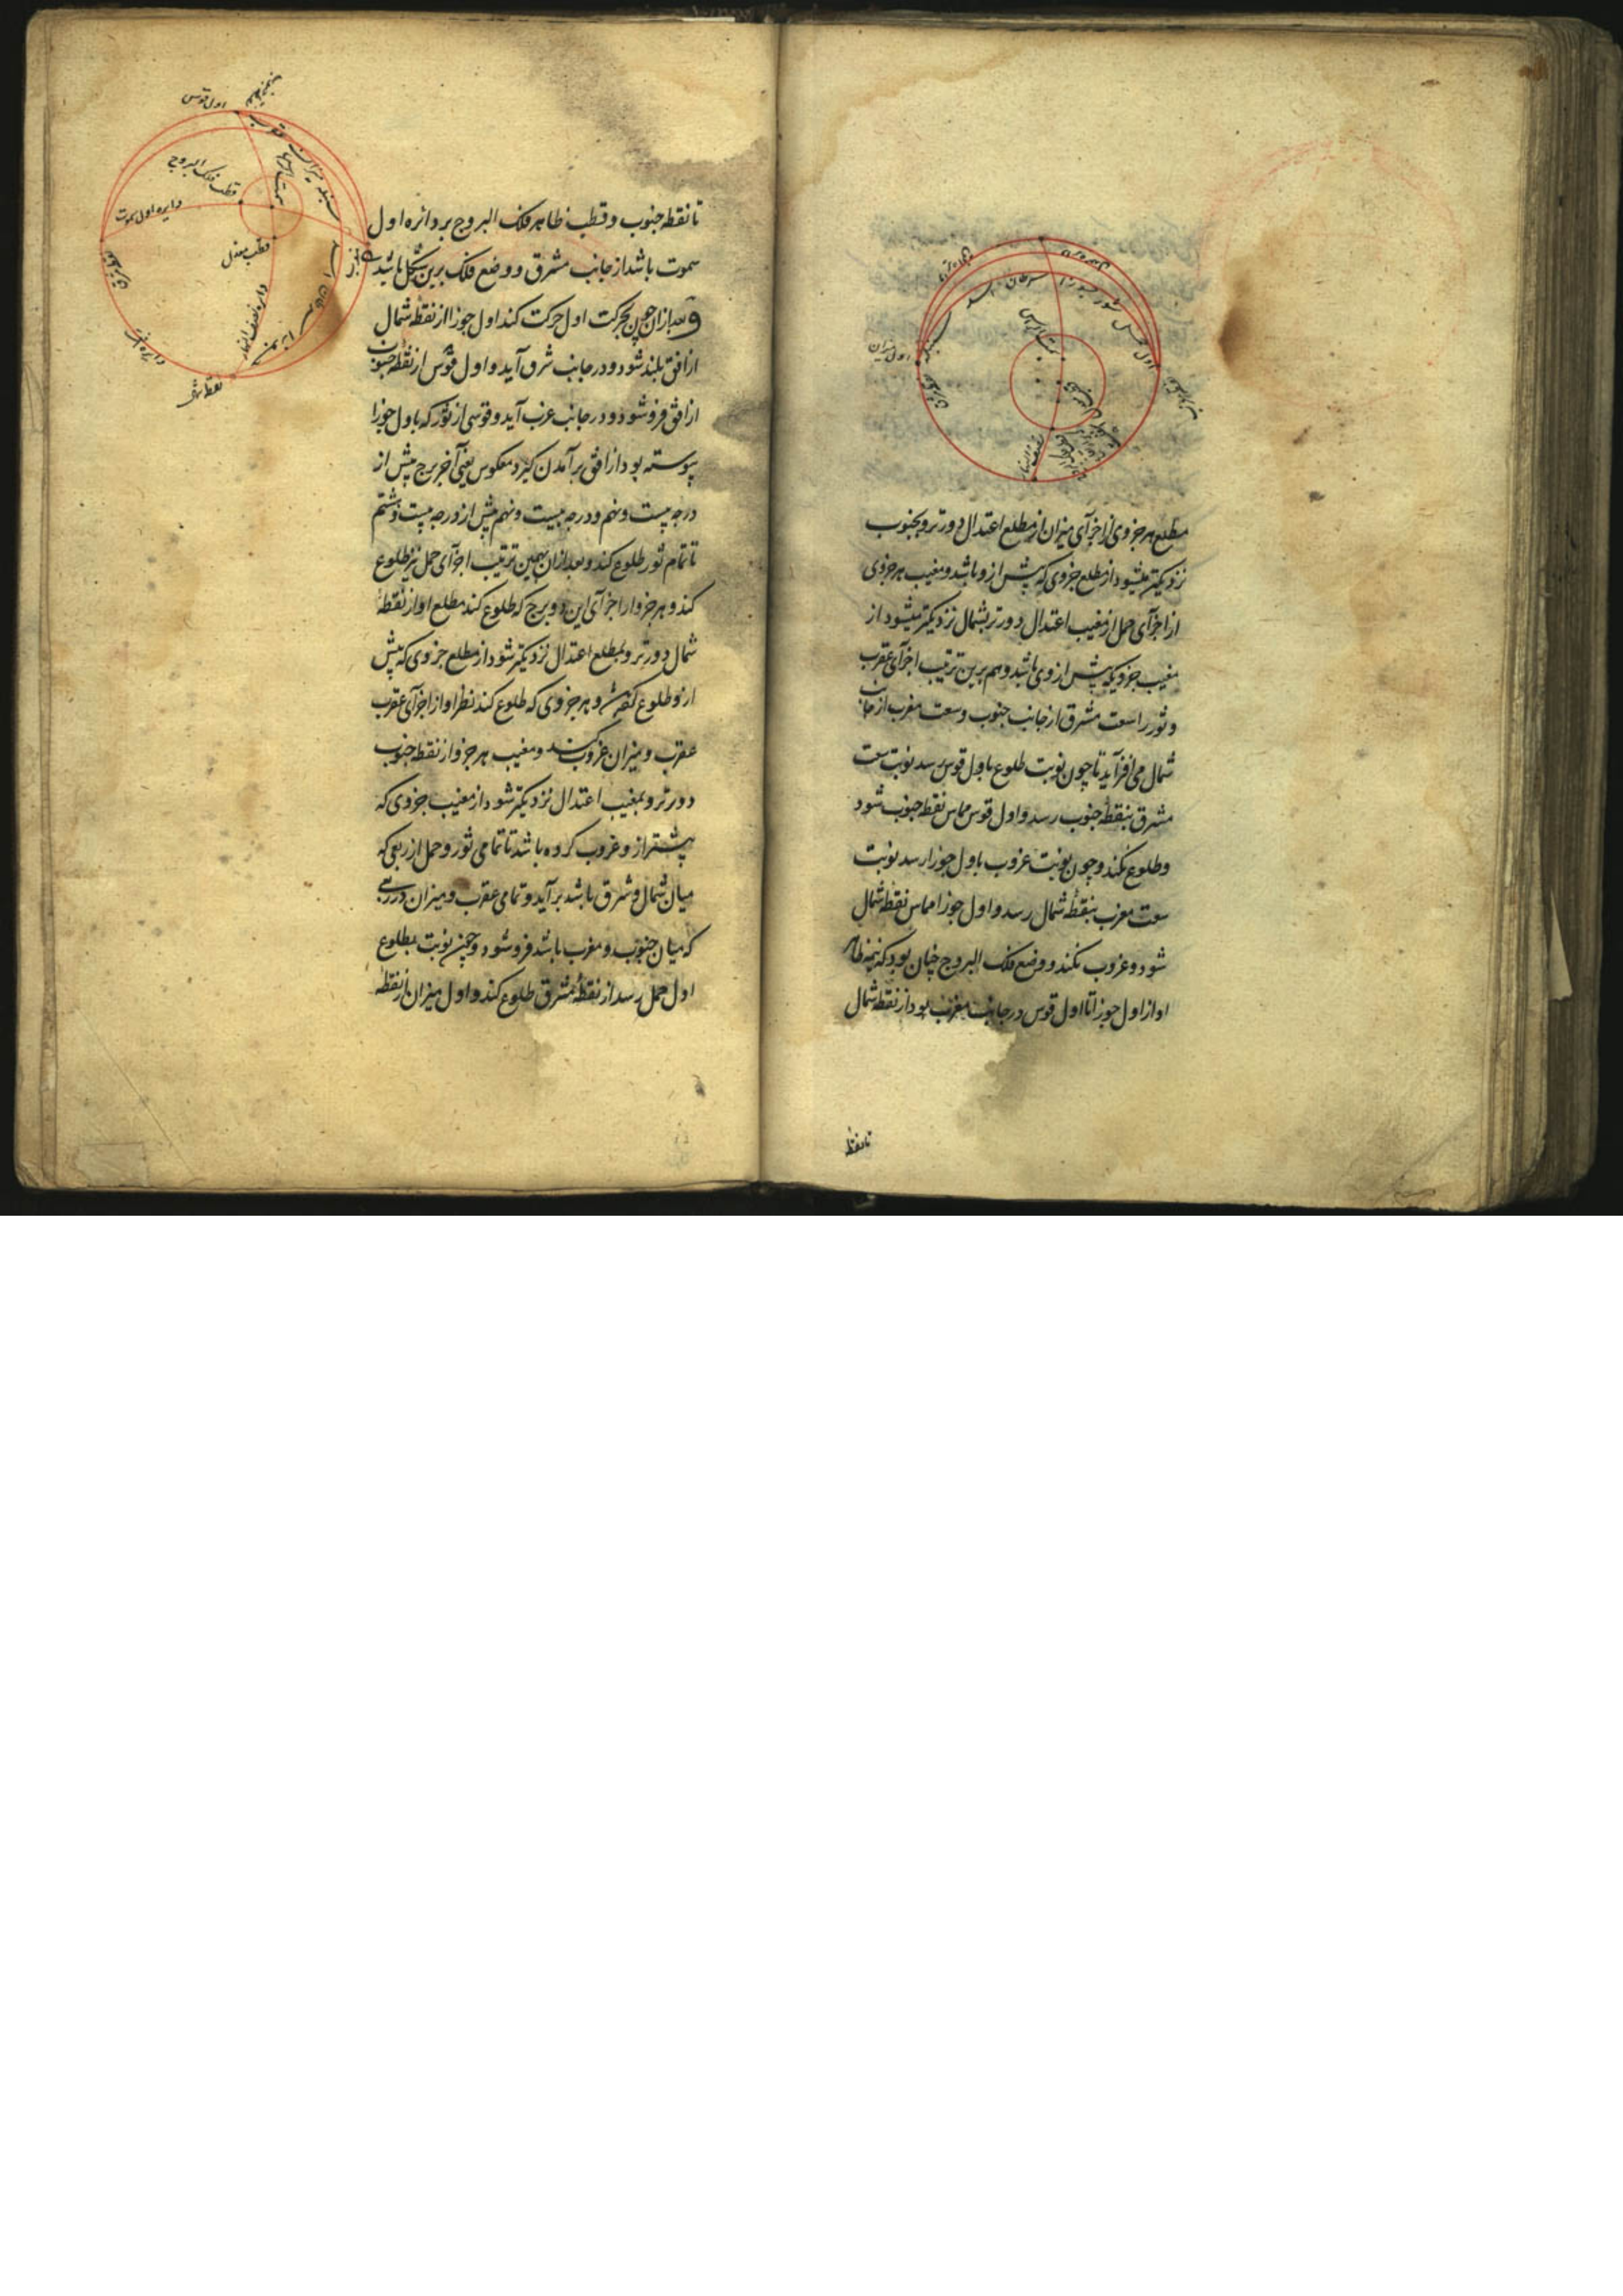 مطلع هر جزوی از اجزآی میزان از مطلع اعتدال دورتر و بجنوب
نزدیکتر میشود از مطلع جزوی که پیش ازو باشد و مغیب هر جزوی
از اجزآی حمل از مغیب اعتدال دورتر بشمال نزدیکتر میشود از
مغیب جزویکه پیش از وی باشد و هم برین ترتیب اجزآی عقرب
و ثور را سعت مشرق از جانب جنوب و سعت مغرب از جانب
شمال می افزآید تا چون نوبت طلوع باول قوس رسد نوبت سعت
مشرق بنقطه جنوب رسد و اول قوس مماس نقطه جنوب شود
و طلوع نکند و چون نوبت غروب باول جوزا رسد نوبت
سعت مغرب بنقطه شمال رسد و اول جوزا مماس نقطه شمال
شود و غروب نکند و وضع فلک البروج چنان بود که نیمه ظاهر
او از اول جوزا تا اول قوس در جانب مغرب بود از نقطه شمال
تا نقطه
اول میزان
سنبله
اسد
سرطان
جوزا
ثور
حمل
اول
سمت الراس
تا نقطه جنوب و قطب ظاهر فلک البروج بر دائره اول
سموت باشد از جانب مشرق و وضع فلک برین شکل باشد
و بعد از ان چون بحرکت اول حرکت کند اول جوزا از نقطه شمال
از افق بلند شود و در جانب شرق آید و اول قوس از نقطه جنوب
از افق فرو شود و در جانب غرب آید و قوسی از ثور که باول جوزا
پیوسته بود از افق برآمدن گیرد معکوس یعنی آخر برج پیش از
درجه بیست و نهم و درجه بیست و نهم پیش از درجه بیست و هشتم
تا تمام ثور طلوع کند و بعد از ان بهمین ترتیب اجزآی حمل نیز طلوع
کند و هر جزو از اجزآی این دو برج که طلوع کند مطلع او از نقطه
شمال دورتر و بمطلع اعتدال نزدیکتر شود از مطلع جزوی که پیش
ازو طلوع کند و هر جزوی که طلوع کند نظیر او از اجزآی عقرب
عقرب و میزان غروب کند و مغیب هر جزو از نقطه جنوب
دورتر و بمغیب اعتدال نزدیکتر شود از مغیب جزوی که
پیشتر ازو غروب کرده باشد تا تمامی ثور و حمل از ربعی که
میان شمال و شرق باشد برآید و تمامی عقرب و میزان در ربعی
که میان جنوب و مغرب باشد فرو شود و چون نوبت بطلوع
اول حمل رسد از نقطه مشرق طلوع کند و اول میزان از نقطه
اول قوس
قطب فلک البروج
دایره اول سموت
قطب معدل
دایره نصف النهار
سمت الراس
میزان
سنبله
دایره افق